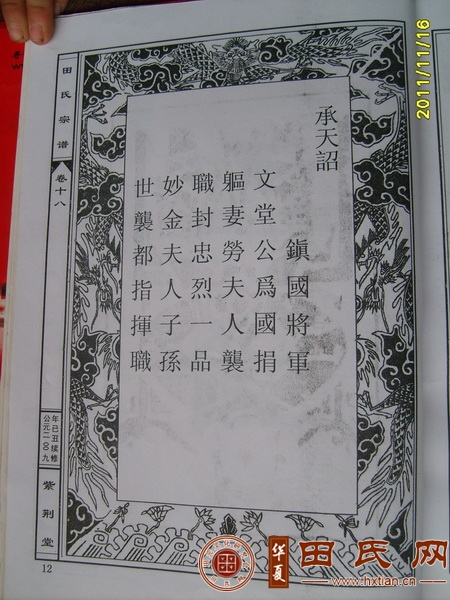 承天詔
鎮國將軍
文堂公爲國捐
軀妻勞夫人襲
職封忠烈一品
妙金夫人子孫
世襲都指揮職
田氏宗谱
卷十八
公元二〇〇九
年己丑续修
紫荆堂
12
2011/11/16
华夏
田氏网
www.hxtian.cn